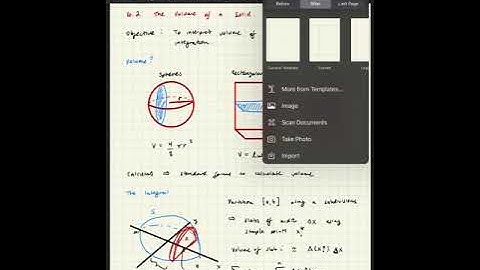 6.2 The Volume of a Solid
Objective: To interpret volume of
integration.
Volume?
Spheres
Rectangular
V = 4/3 π r³
V =
Calculus ⇒ standard forms to calculate volume
The Integral
Partition [a,b] along n subdivisions
⇒ slabs of width Δx using
sample point xᵢ*
Volume of slab i ≈ A(xᵢ*) Δx
Before
After
Last Page
Current Template
Current
More from Templates...
Image
Scan Documents
Take Photo
Import